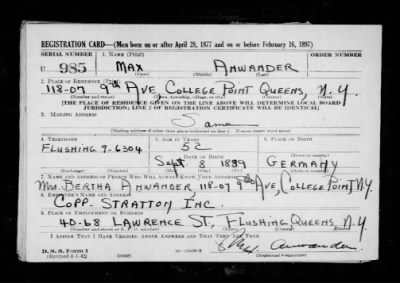 REGISTRATION CARD—(Men born on or after April 28, 1877 and on or before February 16, 1897)
SERIAL NUMBER 1. NAME (Print)
U 985 MAX ANWANDER
(First) (Middle) (Last)
2. PLACE OF RESIDENCE (Print)
118-07 9th AVE, COLLEGE POINT QUEENS, N.Y.
(Number and street) (Town, township, village, or city) (County) (State)
[THE PLACE OF RESIDENCE GIVEN ON THE LINE ABOVE WILL DETERMINE LOCAL BOARD
JURISDICTION; LINE 2 OF REGISTRATION CERTIFICATE WILL BE IDENTICAL]
3. MAILING ADDRESS
Same
[Mailing address if other than place indicated on line 2. If same insert word same]
4. TELEPHONE 5. AGE IN YEARS 6. PLACE OF BIRTH
52
FLUSHING 9-6304 DATE OF BIRTH
Sept 8 1889 GERMANY
(Mo.) (Day) (Yr.) (State or country)
7. NAME AND ADDRESS OF PERSON WHO WILL ALWAYS KNOW YOUR ADDRESS
Mrs. BERTHA ANWANDER, 118-07 9th AVE, COLLEGE POINT N.Y.
8. EMPLOYER'S NAME AND ADDRESS
COPP. STRATTON INC.
9. PLACE OF EMPLOYMENT OR BUSINESS
40-68 LAWRENCE ST, FLUSHING QUEENS, N.Y.
(Number and street or R. F. D. number) (Town) (County) (State)
I AFFIRM THAT I HAVE VERIFIED ABOVE ANSWERS AND THAT THEY ARE TRUE.
D. S. S. Form 1
(Revised 4-1-42) (over) Max Anwander
(Registrant's signature)